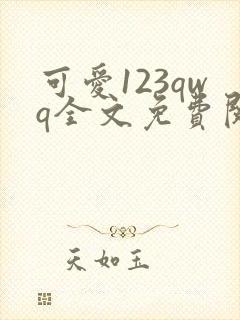 可愛123qw
q全文免費閱
天如玉